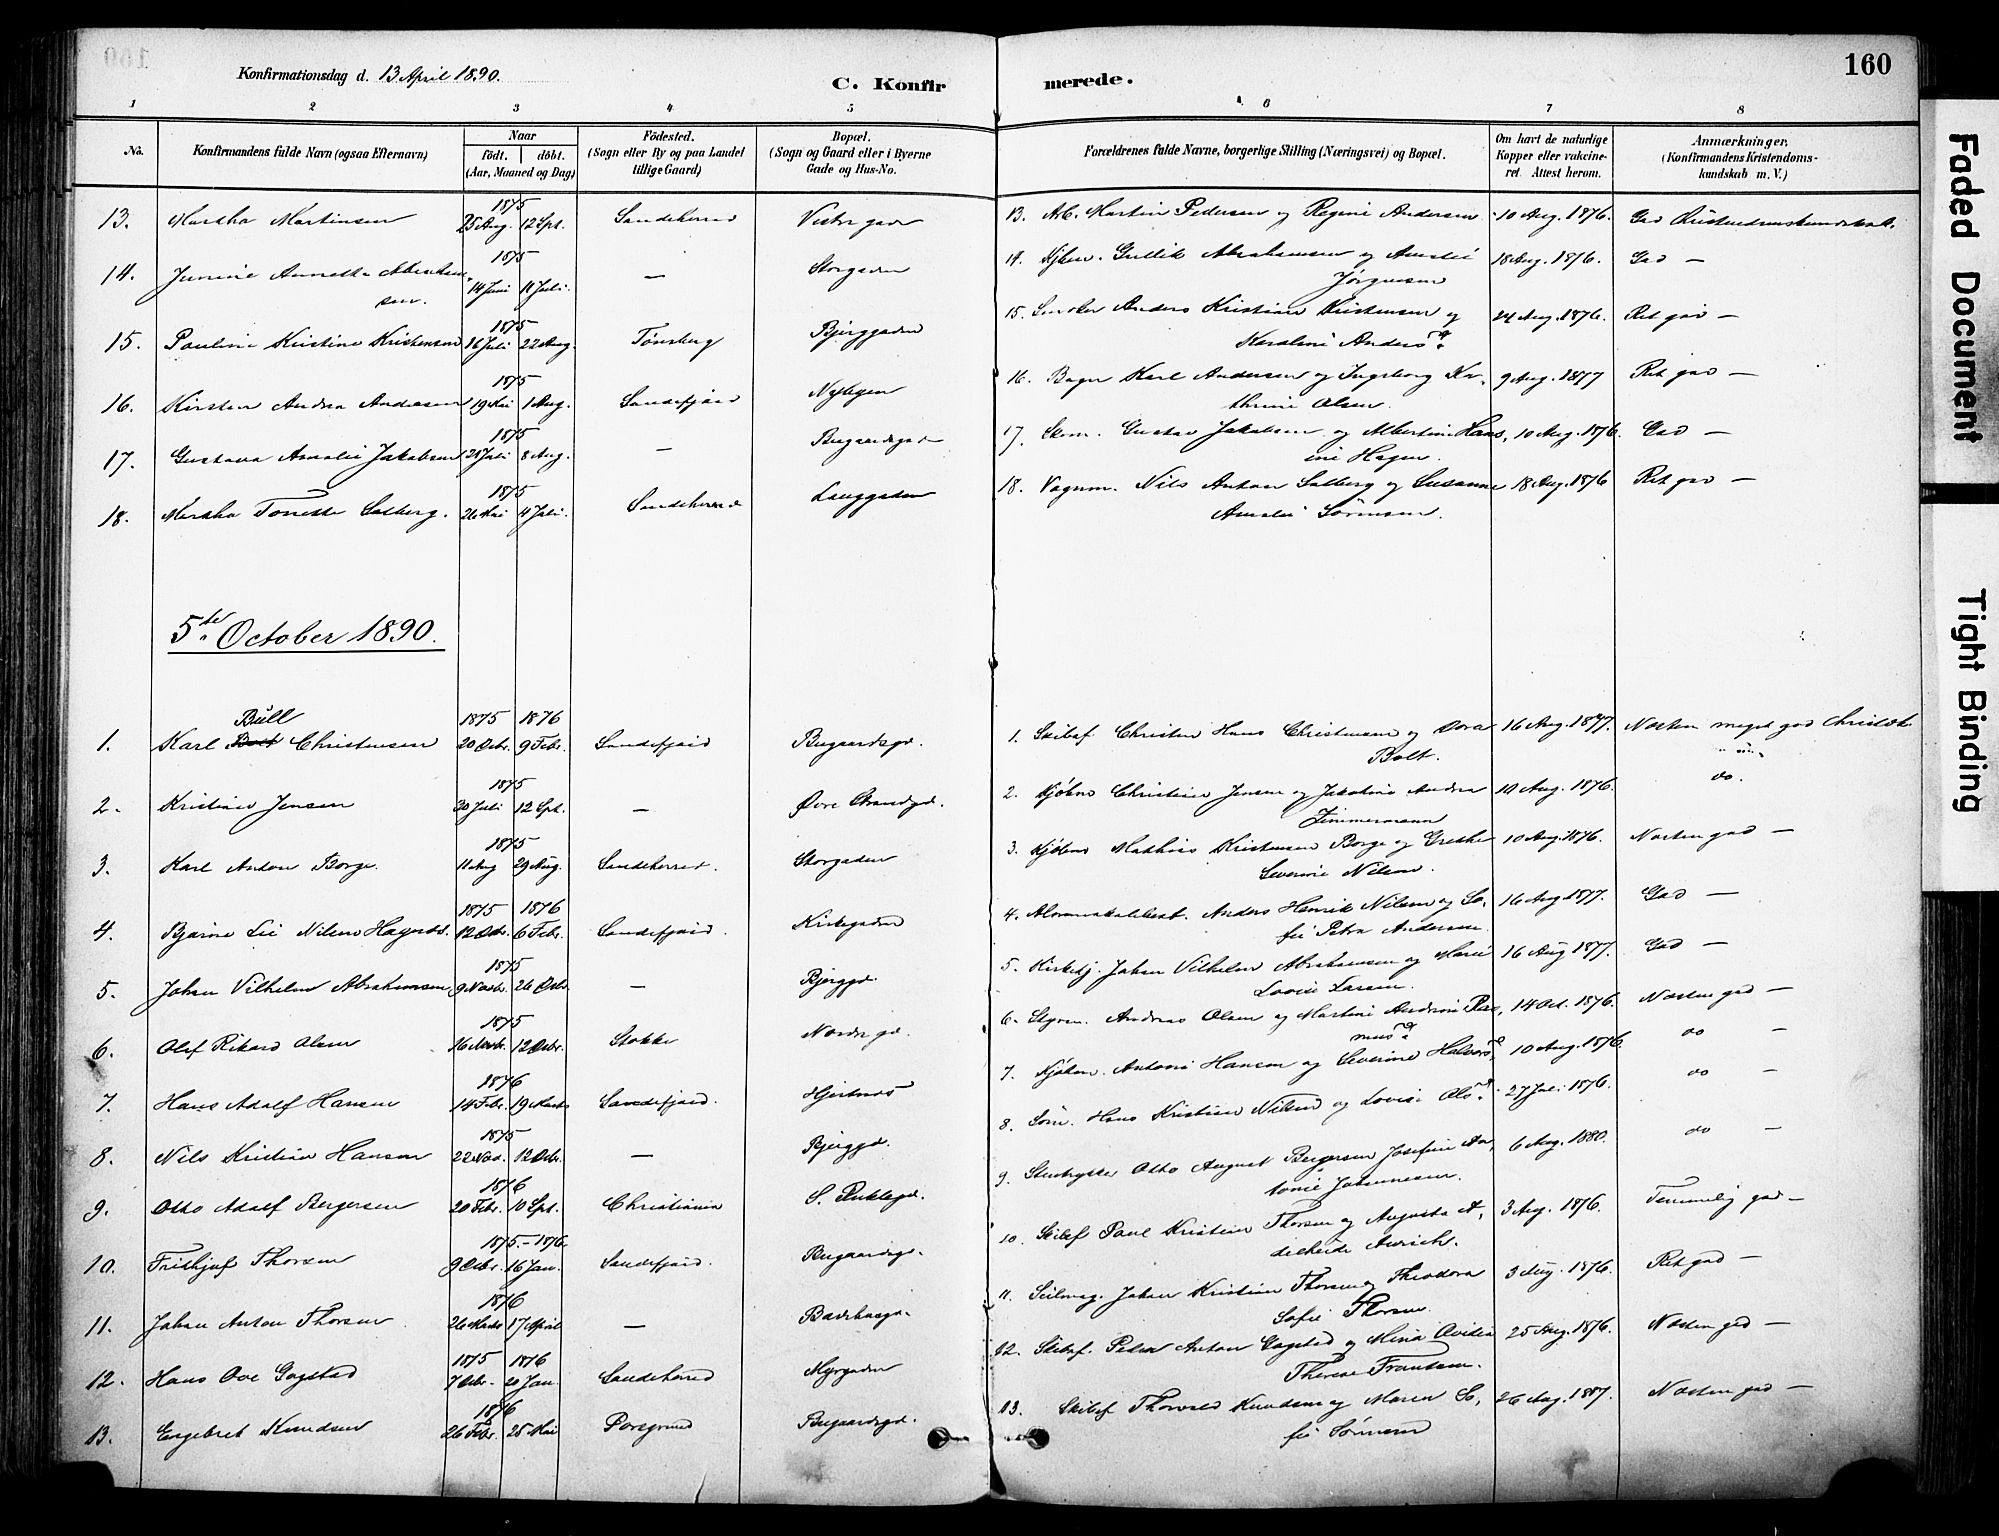 Konfirmationsdag d. 13 April 1890.
C. Konfirmerede.
160
1 2 3 4 5 6 7 8
No. Konfirmandens fulde Navn (ogsaa Efternavn) Naar födt. döbt. (Aar, Maaned og Dag) Födested. (Sogn eller By og paa Landet tillige Gaard) Bopæl. (Sogn og Gaard eller i Byerne Gade og Hus-No. Forældrenes fulde Navne, borgerlige Stilling (Næringsvei) og Bopæl. Om havt de naturlige Kopper eller vakcineret. Attest herom. Anmærkninger, (Konfirmandens Kristendomskundskab m. V.)
13. Martha Martinsen 1875 25 Aug. 12 Spt. Sandeherred Vestre gade 13. Martin Pedersen og Regine Andersen 10 Aug. 1876. God Kristendomskundskab.
14. Annette Abrahamsen. 1875 14 Juni 11 Juli. — Storgaden 14. Gullik Abrahamsen og Amalie Jörgensen 18 Aug. 1876. God —
15. Pauline Kristine Kristensen 1875 16 Juli 22 Aug. Tønsberg Bjerggaden 15. Anders Kristian Kristensen og Karoline Anders 24 Aug. 1876. Ret god —
16. Kirsten Andrea Andersen 1875 19 Mai 1 Aug. Sandefjord 16. Bager Karl Andersen og Ingeborg Kathrine Olsen. 9 Aug. 1877 Ret god —
17. Gustava Amalie Jakobsen 1875 Juli 8 Aug. — Bugaardsgad 17. Gustav Jakobsen og Albertine Hansine Hagen. 10 Aug. 1876. God —
18. Martha Tonette Solberg. 1875 26 Mai 4 Juli. Sandeherred Langgaden 18. Vognm. Nils Anton Solberg og Susanne Amalie Sörensen. 18 Aug. 1876 Ret god —
5te October 1890.
1. Karl Bull Christensen 1875 20 Debr. 1876 9 Febr. Sandefjord Bugaardsgd. 1. Skibsf. Christen Hans Christensen og Dora Bolt. 16 Aug. 1877. Næsten meget god
2. Kristian Jensen 1875 30 Juli 12 Spt. — Øvre Strandgd. 2. Kjøbm Christian Jensen og Jakobine Andrea Zimmermann 10 Aug. 1876. do.
3. Karl Anton Borge. 1875 11 Aug 29 Aug. Sandeherred. Storgaden 3. Kjøbm Mathias Kristensen Borge og Grethe Severine Nilsen. 10 Aug. 1876. Næsten god —
4. Bjarne Lie Nilsen 1875 12 1876 6 Febr. Sandefjord. Kirkegaden 4. Anders Henrik Nilsen og Sofie Petra Andersen 16 Aug 1877. God —
5. Johan Vilhelm Abrahamsen 1875 9 Novbr. 26 Debr. — Bjerggd. 5. Kirketj. Johan Vilhelm Abrahamsen og Marie Lovise Larsen. 16 Aug 1877. God —
6. Olaf Rikard Olsen 1875 16 Novbr. 12 Debr. Stokke Nordre gd. 6. Styrm. Andreas Olsen og Martine Andrine Rasmus 14 Oct. 1876. Næsten god —
7. Hans Adolf Hansen 1876 14 Febr. 19 Marts Sandefjord. Hjertnes 7. Kjøbm. Anton Hansen og Severine Halvors 10 Aug. 1876. do —
8. Nils Kristian Hansen 1875 22 Nov. 12 Debr. — Bjerggd. 8. Söm. Hans Kristian Nilsen og Lovise Ols 27 1876. do —
9. Otto Adolf Bergersen 1876 20 Febr. 10 Spt. Christiania S. 9. Otto August Bergersen Josefine Antonie Johannesen. 6 Aug. 1880. do —
10. Frithjof Thorsen 1875.–1876. 9 Debr. 16 Jan. Sandefjord. Bugaardsgd. 10. Skibsf Paul Kristian Thorsen og Augusta Adelheide 3 Aug. 1876. Temmelig god —
11. Johan Anton Thorsen. 1876 26 Marts 17 April — 11. Seilmag. Johan Kristian Thorsen og Theodora Sofie Thorsen 3 Aug. 1876. Ret god —
12. Hans Ove Gogstad 1875 7 1876 20 Jan. Sandeherred Myrgaden 12. Skibsf. Peter Anton Gogstad og Mina Ovidia Therese Frantsen. 25 Aug. 1876. Næsten god —
13. Engebret Knudsen 1876 26 Febr. 25 Mai Porsgrund Bugaardsgd. 13. Skibsf Thorvald Knudsen og Maren Sofie Sörensen 26 Aug. 1887. Næsten god —
Faded Document
Tight Binding